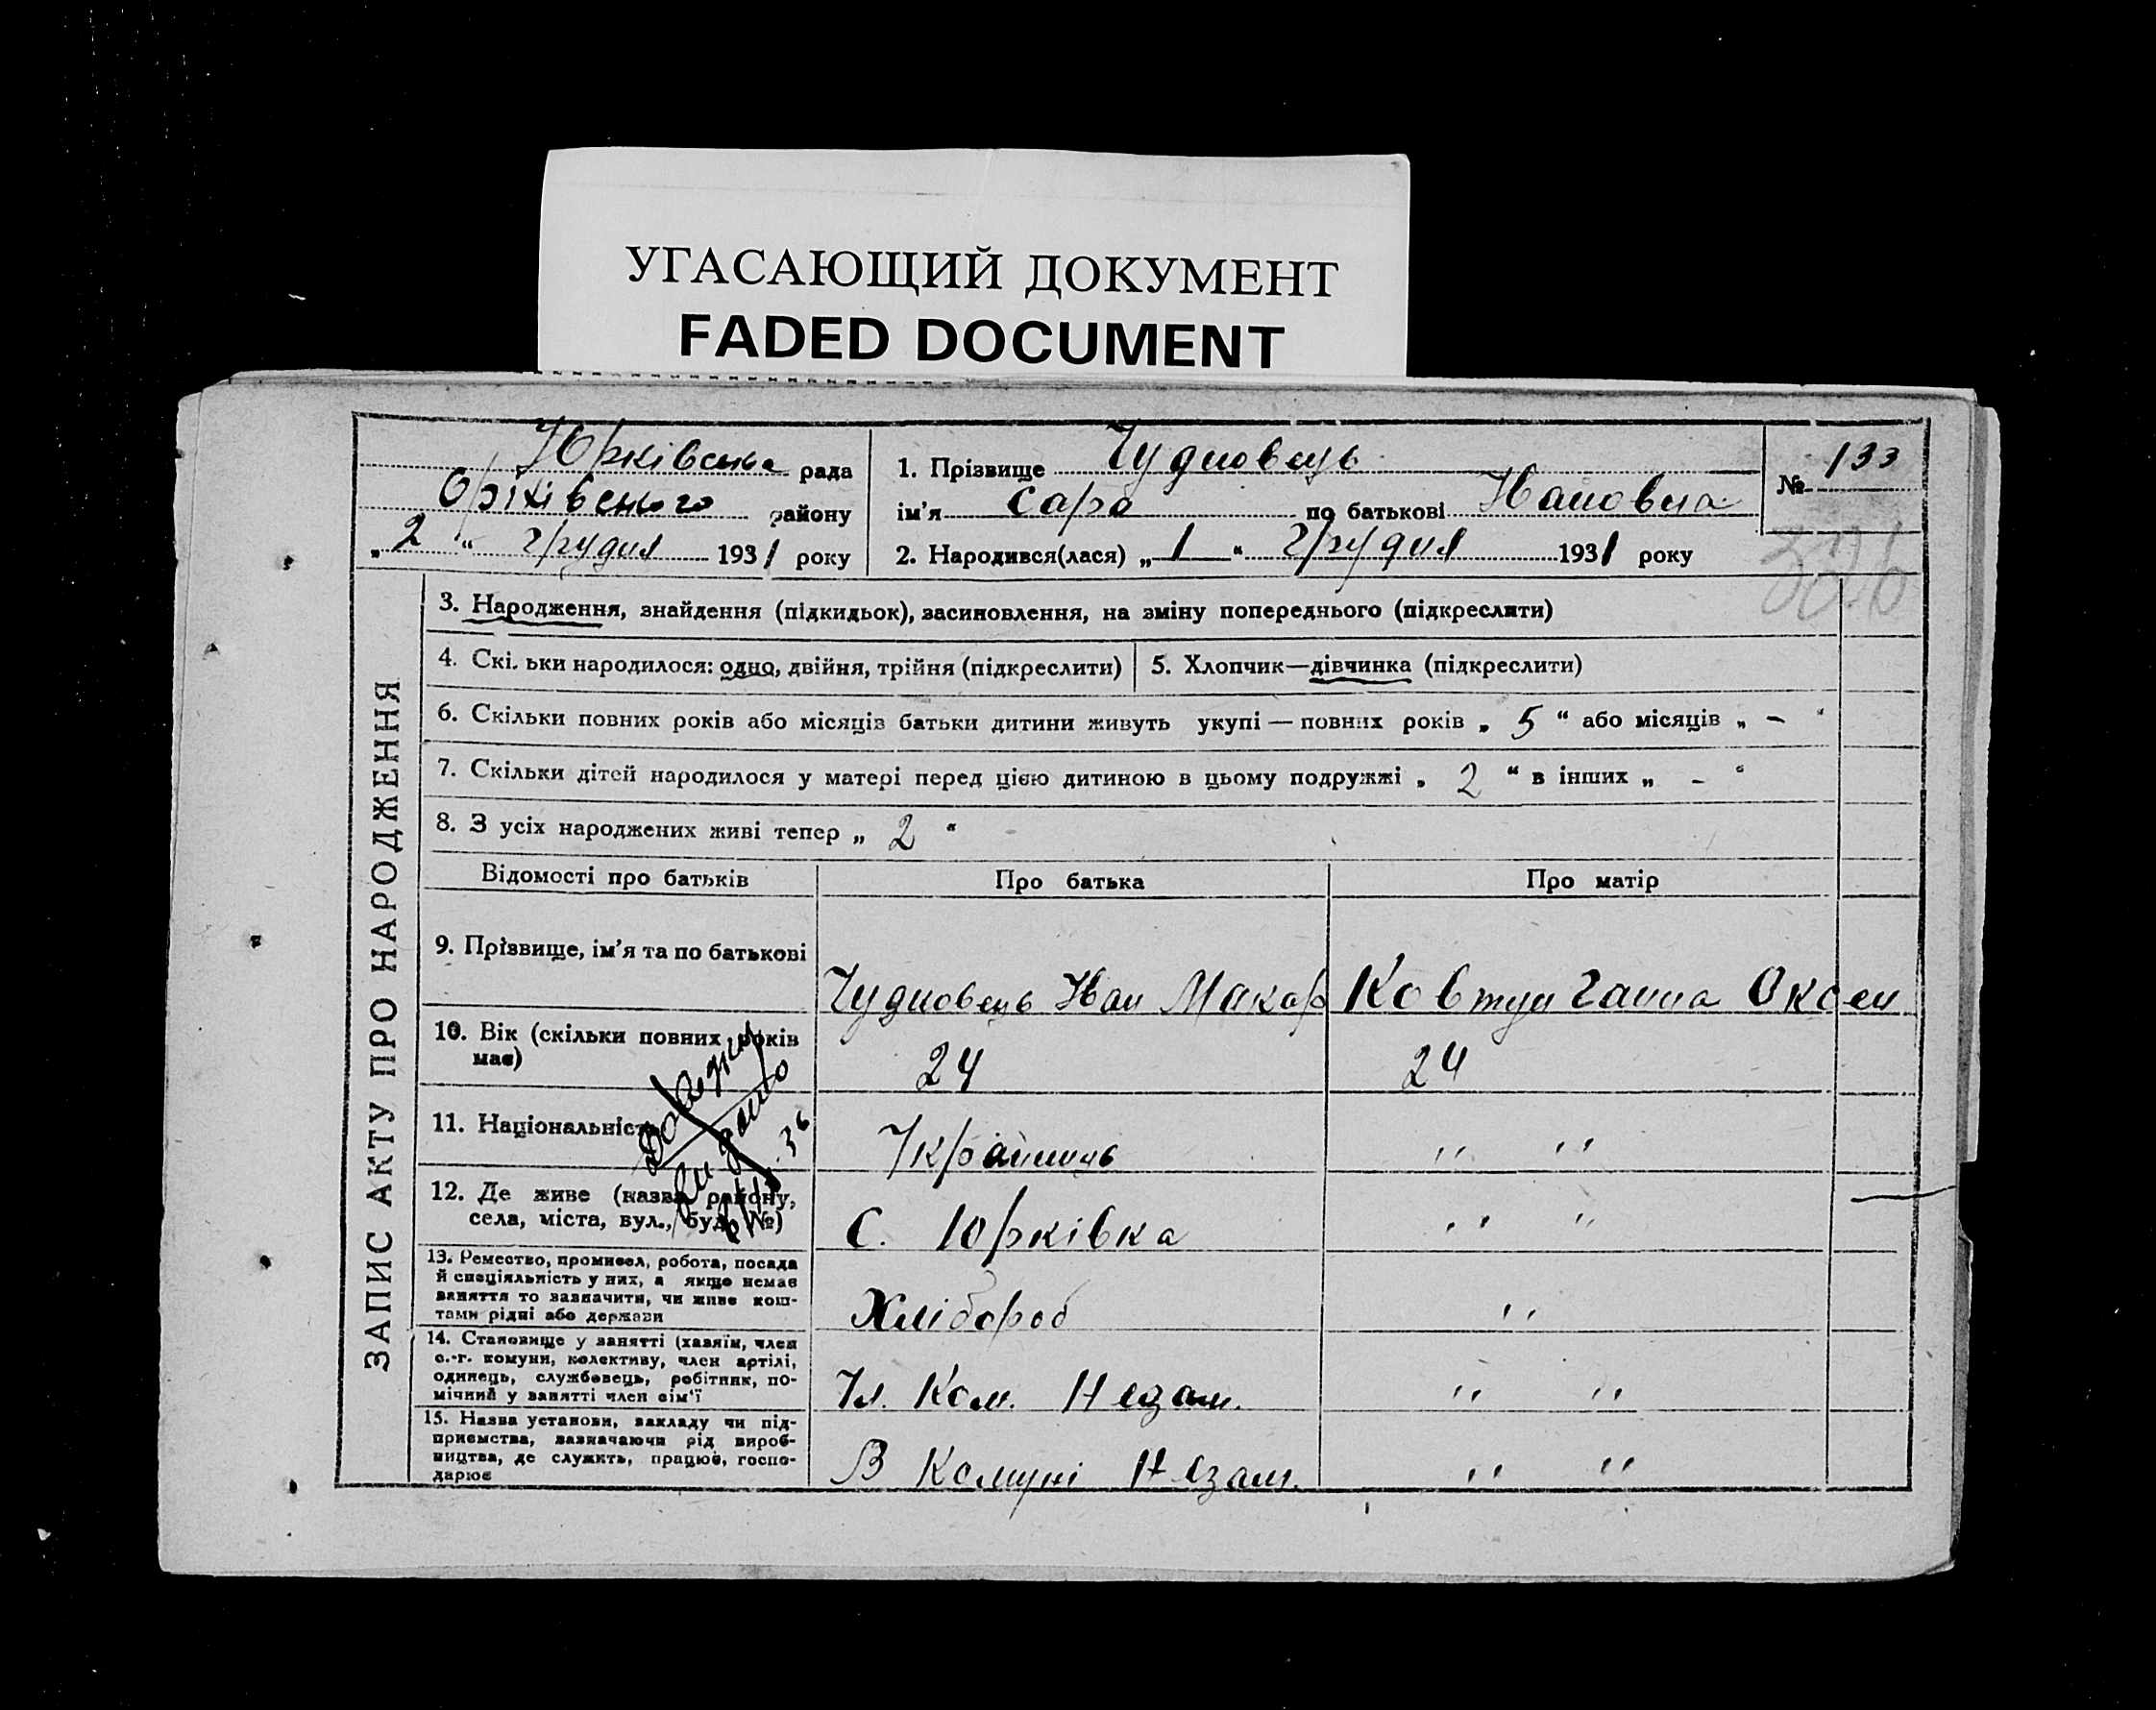 УГАСАЮЩИЙ ДОКУМЕНТ
FADED DOCUMENT
Юрківська рада
Оріхівського району
„ 2 “ грудня 1931 року
1. Прізвище Чудновець
ім’я Сара по батькові Ивановна
2. Народився(лася) „ 1 “ грудня 1931 року
№ 133
326
ЗАПИС АКТУ ПРО НАРОДЖЕННЯ
3. Народження, знайдення (підкидьок), засиновлення, на зміну попереднього (підкреслити)
4. Скі. ьки народилося: одно, двійня, трійня (підкреслити)
5. Хлопчик—дівчинка (підкреслити)
6. Скільки повних років або місяців батьки дитини живуть укупі — повних років „ 5 “ або місяців „ – “
7. Скільки дітей народилося у матері перед цією дитиною в цьому подружжі „ 2 “ в інших „ – “
8. З усіх народжених живі тепер „ 2 “
Відомості про батьків Про батька Про матір
9. Прізвище, ім’я та по батькові Чудновець Иван Макар Ковтун Ганна Оксен
10. Вік (скільки повних років
має) 24 24
11. Національність Українець " "
12. Де живе (назва району,
села, міста, вул., буд. №) С. Юрківка " "
13. Ремество, промисел, робота, посада
й спеціяльність у них, а якщо немає
заняття то зазначити, чи живе кош-
тами рідні або держави Хлібороб "
14. Становище у занятті (хазяїн, член
с.-г. комуни, колективу, член артілі,
одинець, службовець, робітник, по-
мічний у занятті член сім’ї Чл. Ком. Незам. " "
15. Назва установи, закладу чи під-
приємства, зазначаючи рід вироб-
ництва, де служить, працює, госпо-
дарює В Комуні Незам. " "
36